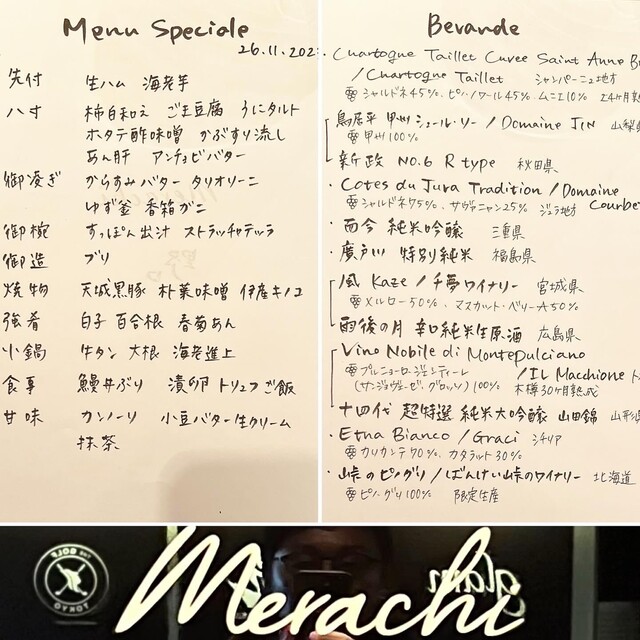 Menu Speciale
26.11.202
先付 生ハム 海老芋
八寸 柿白和え ごま豆腐 うにタルト
ホタテ酢味噌 かぶすり流し
あん肝 アンチョビバター
御凌ぎ からすみバター タリオリーニ
ゆず釜 香箱がに
御椀 すっぽん出汁 ストラッチャテッラ
御造 ブリ
焼物 天城黒豚 朴葉味噌 伊産キノコ
強肴 白子 百合根 春菊あん
小鍋 牛タン 大根 海老進上
食事 鰻丼ぶり 漬卵 トリュフご飯
甘味 カンノーリ 小豆バター生クリーム
抹茶
Bevande
・Chartogne Taillet Cuvee Saint Anne B
/Chartogne Taillet シャンパーニュ地方
シャルドネ45% ピノ・ノワール45% ムニエ10%
鳥居平 甲州シュール・リー/Domaine JIN 山梨
甲州100%
新政 NO.6 R type 秋田県
・Cotes du Jura Tradition/Domaine
シャルドネ75% サヴァニャン25% ジュラ地方 Courbe
・而今 純米吟醸 三重県
・廣戸川 特別純米 福島県
風 Kaze/千夢ワイナリー 宮城県
メルロー50% マスカット・ベリーA50%
雨後の月 辛口純米生原酒 広島県
Vino Nobile di Montepulciano
プルニョーロ・ジェンティーレ /IL Macchione
(サンジョヴェーゼ・グロッソ)100% 木樽30ヶ月熟成
十四代 超特選 純米大吟醸 山田錦 山形県
・Etna Bianco/Graci シチリア
カリカンテ70% カタラット30%
・峠のピノグリ/ばんけい峠のワイナリー 北海道
ピノ・グリ100% 限定生産
THE GOLF
TOKYO
Merachi
glam